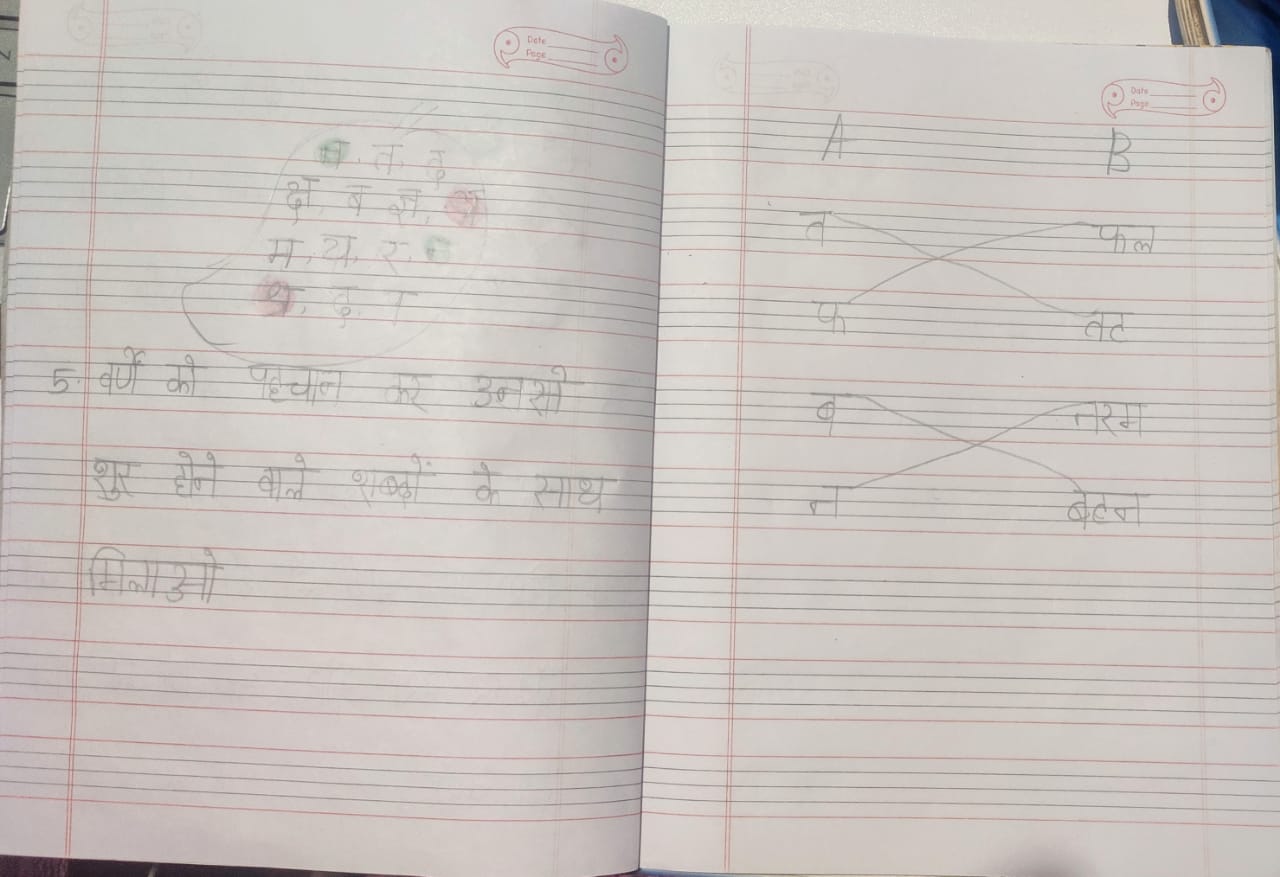 Date
Page
त. द
क्ष. ब ज्ञ.
म. य. र.
द. र
5. वर्णे को पहचान कर उनसो
शुर होने वाले शब्दों के साथ
मिलाओ
Date
Page
A B
त फल
फ तट
ब नरम
न बटन